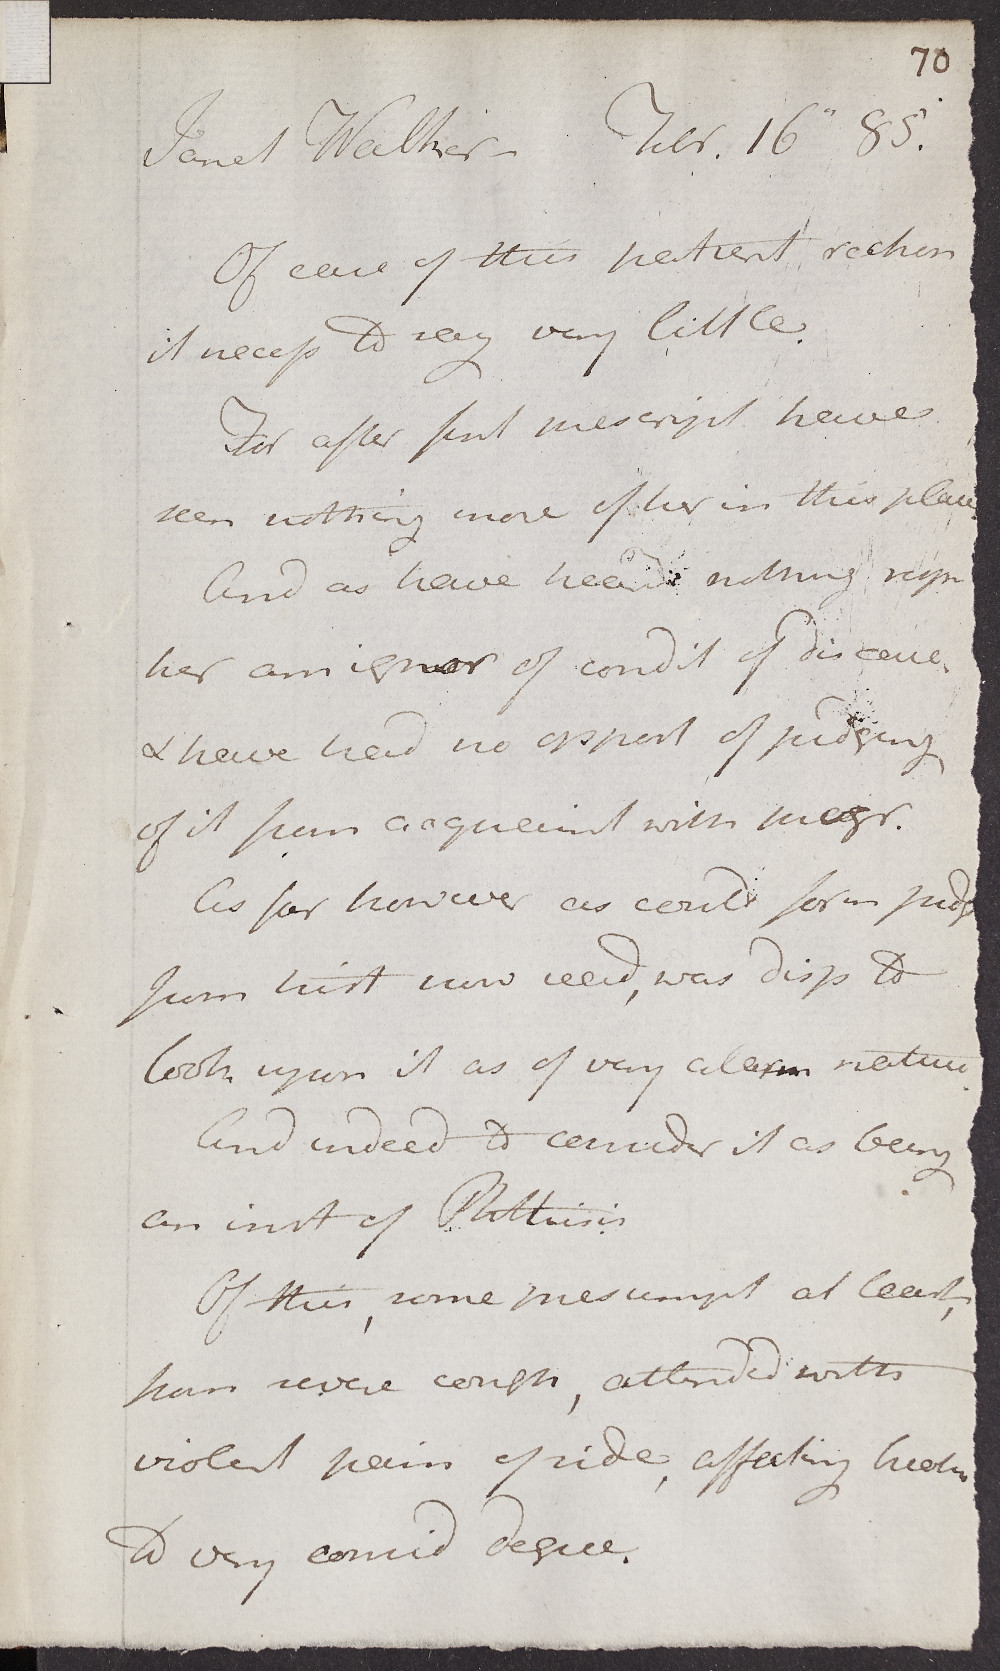 70
Janet Walker Febr. 16" 85.
Of case of this patient reckon
it necess to say very little.
For after first prescript have
seen nothing more of her in this place
And as have heard nothing resp
her am ignor of condit of disease
& have had no opport of judging
of it from acquaint with progr.
As far however as could form judg
from hist now read, was disp to
look upon it as of very alarm nature.
And indeed to consider it as being
an inst of Phthisis
Of this, some presumpt at least,
from severe cough, attended with
violent pain of side, affecting
to very consid degree.